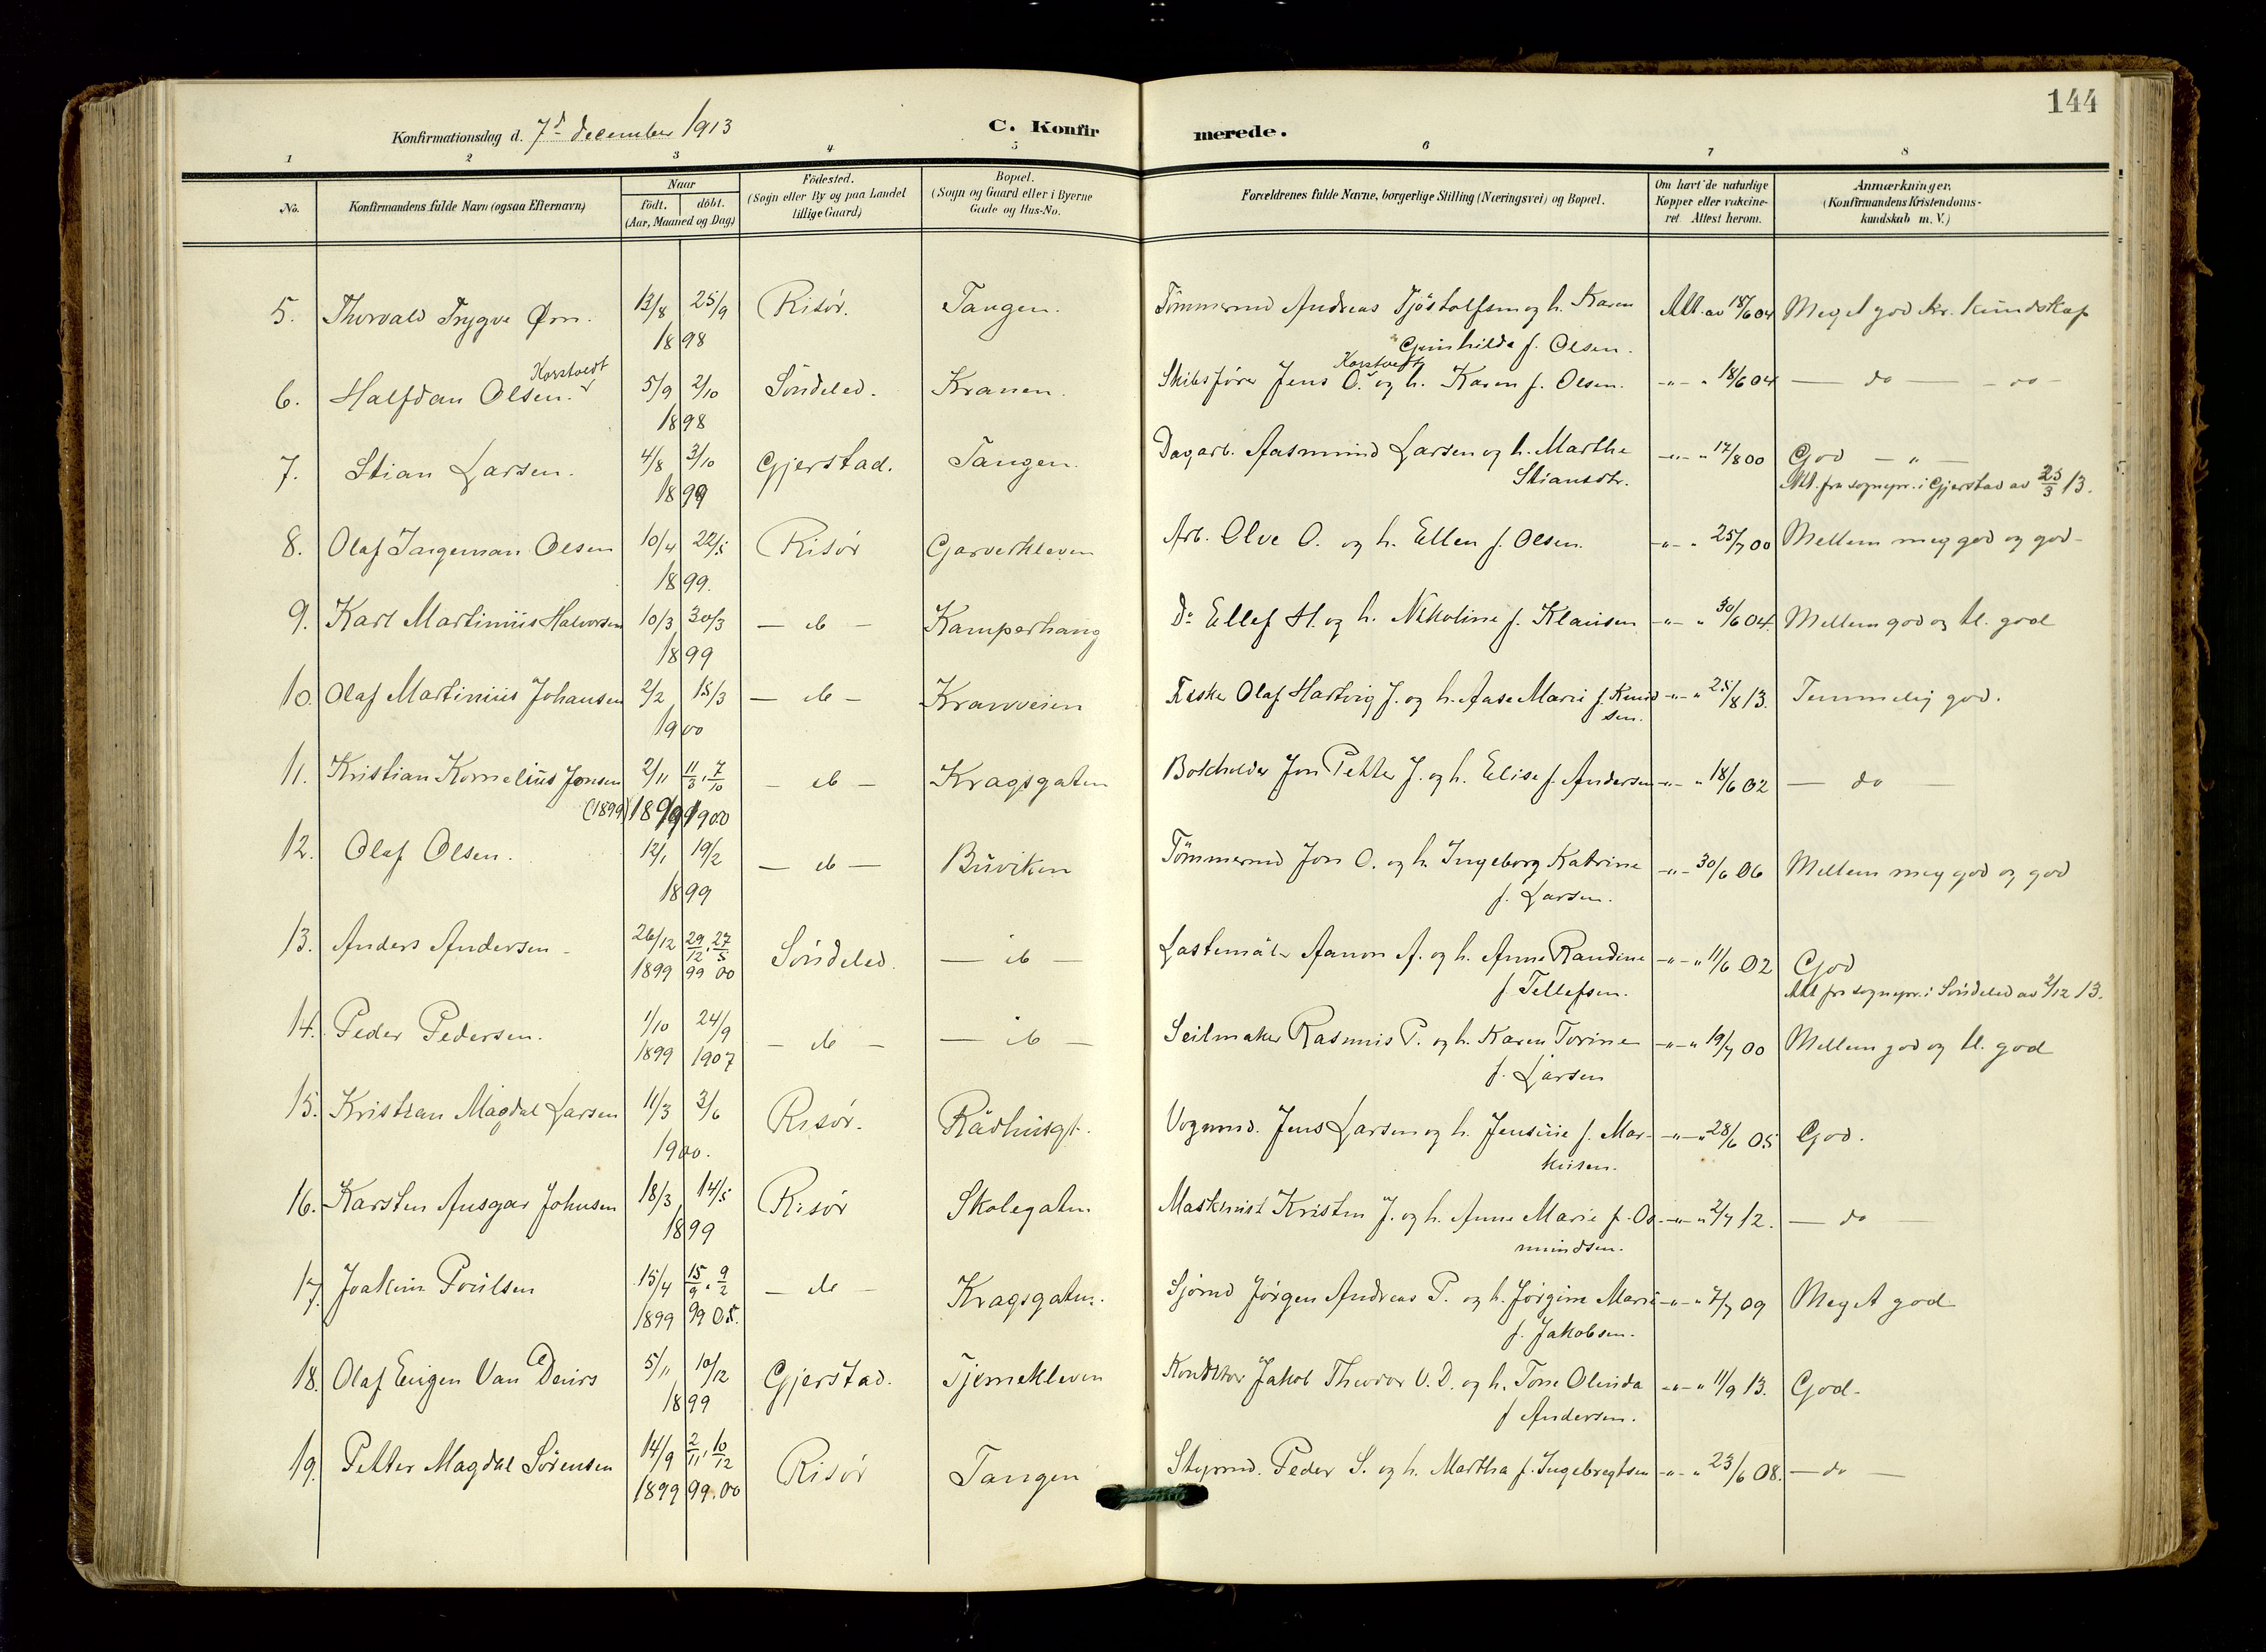 144
Konfirmationsdag d. 7d december 1913
C. Konfir merede.
1 2 3 4 5 6 7 8
No. Konfirmandens fulde Navn (ogsaa Efternavn)
Naar
født. døbt.
(Aar, Maaned og Dag)
Fødested.
(Sogn eller By og paa Landet
tillige Gaard)
Bopæl.
(Sogn og Gaard eller i Byerne
Gade og Hus-No.
Forældrenes fulde Navne, borgerlige Stilling (Næringsvei) og Bopæl.
Om havt de naturlige
Kopper eller vakcine-
ret. Attest herom.
Anmærkninger.
(Konfirmandens Kristendoms-
kundskab m. V.)
5. Thorvald Trygve Ørn. 13/8 25/9 Risör. Tangen. Tömmermd Andreas Tjöstolfsen og h. Karen Att. av 18/6 04 Meget god kr. kundskap
1898 Gunhilda f. Olsen.
Korstvedt Korstvedt
6. Halfdan Olsen. 5/9 2/10 Söndeled. Kranen. Skibsförer Jens O. og h. Karen f. Olsen. -"- " 18/6 04 — do — - do -
1898
7. Stian Larsen. 4/8 3/10 Gjerstad. Tangen. Dagarb. Aasmund Larsen og h. Marthe -"- " 17/8 00 God — " —
1899 Stiansdtr. Att. fra sognepr. i Gjerstad av 25/3 13.
8. Olaf Ingeman Olsen 10/4 22/5 Risör Garverkleven Arb. Olve O. og h. Ellen f. Olsen. -"- " 25/7 00 Mellem meg god og god -
1899.
9. Karl Martinius Halvorsen 10/3 30/3 — do — Kamperhaug Do Ellef H. og h. Nikoline f. Klausen -"- " 30/6 04. Mellem god og tl. god
1899
10. Olaf Martinius Johansen 2/2 15/3 — do — Kranveien Fisker Olaf Hartvig J. og h. Aase Marie f. Knud -"- " 25/8 13. Temmelig god.
1900 sen.
11. Kristian Kornelius Jonsen 2/11 11/3, 7/10 — do — Kragsgaten Bokholder Jon Petter J. og h. Elise f. Andersen -"- " 18/6 02 — do —
(1899) 1899 1900
12. Olaf Olsen. 12/1 19/2 — do — Buviken Tömmermd Jon O. og h. Ingeborg Katrine -"- 30/6 06 Mellem meg god og god
1899 f. Larsen.
13. Anders Andersen - 26/12 29/12, 27/5 Söndeled. — do — Lastemåler Aanon A. og h. Anne Randine -"- " 11/6 02 God
1899 99 00 f. Tellefsen. Att fra sognepr. i Söndeled av 2/12 13.
14. Peder Pedersen. 1/10 24/9 — do — — do — Seilmaker Rasmus P. og h. Karen Torine -"- " 19/7 00 Mellem god og tl. god
1899 1907 f. Larsen
15. Kristian Magdal Larsen 11/3 3/6 Risör. Rådhusgt. Vognmd. Jens Larsen og h. Jensine f. Mar- -"- " 28/6 05 God.
1900. kusen.
16. Karsten Ansgar Johnsen 18/3 14/5 Risör Skolegaten Maskinist Kristen J. og h. Anne Marie f. Os- -"- " 2/7 12. — do —
1899 mundsen.
17. Joakim Poulsen 15/4 15/9, 9/2 — do — Kragsgaten. Sjömd Jörgen Andreas P. og h. Jörgine Marie -"- " 7/7 09 Meget god
1899 99 05. f. Jakobsen.
18. Olaf Eugen Van Deurs 5/11 10/12 Gjerstad. Tjernekleven Konditor Jakob Theodor V. D. og h. Tone Olinda -"- " 11/9 13. God.
1899 f Andersen.
19. Petter Magdal Sörensen 14/9 2/11, 10/12 Risör Tangen Styrmd. Peder S. og h. Martha f. Ingebregtsen -"- " 23/6 08. — do —
1899 99. 00